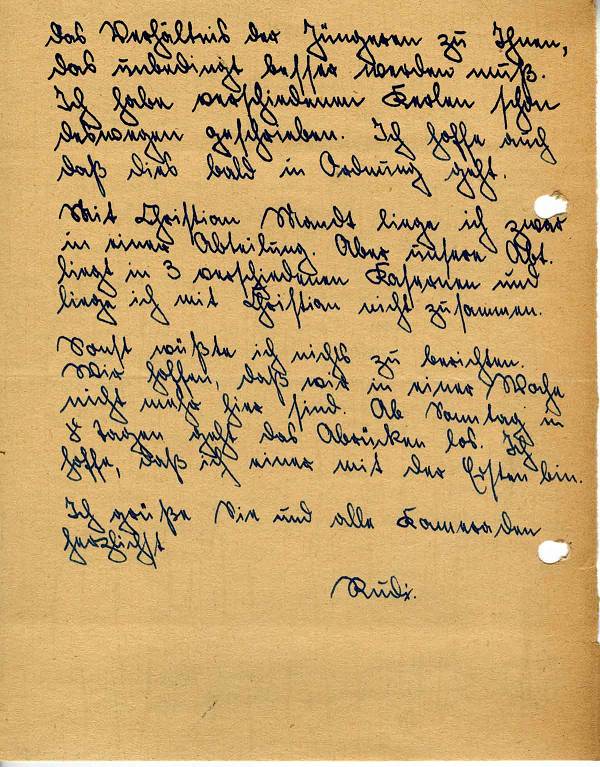 das Verhältnis der Jüngeren zu Ihnen,
das unbedingt besser werden muß.
Ich habe verschiedenen Kerlen schon
deswegen geschrieben. Ich hoffe auch
daß dies bald in Ordnung geht.
Mit Christian Mandt liege ich zwar
in einer Abteilung. Aber unsere Abt.
liegt in 3 verschiedenen Kasernen und
liege ich mit Christian nicht zusammen.
Sonst wüßte ich nichts zu berichten.
Wir hoffen, daß wir in einer Woche
nicht mehr hier sind. Ab Sonntag in
8 Tagen geht das Abrücken los. Ich
hoffe, daß ich einer mit der Ersten bin.
Ich grüße Sie und alle Kameraden
herzlichst
Rudi.